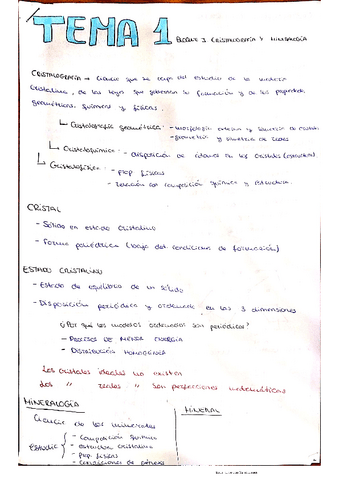 TEMA 1 BLOQUE 3 CRISTALOGRAFÍA Y MINERALOGÍA
CRISTALOGRAFÍA → Ciencia que se ocupa del estudio de la materia
cristalina, de las leyes que gobiernan su formación y de las propiedades
geométricas, químicas y físicas.
Cristalografía geométrica - morfología externa y simetría de cristales
- geometría y simetría de redes
Cristaloquímica - disposición de átomos de los cristales (estructura)
Cristalofísica - prop. físicas
- relación con composición química y estructura.
CRISTAL
- Sólido en estado cristalino
- Forma poliédrica (bajo condiciones de formación)
ESTADO CRISTALINO
- Estado de equilibrio de un sólido
- Disposición periódica y ordenada en las 3 dimensiones
¿Por qué los modelos ordenados son periódicos?
- PROCESOS DE MENOR ENERGÍA
- DISTRIBUCIÓN HOMOGÉNEA
Los cristales ideales no existen
Los " reales " son perfecciones matemáticas
MINERALOGÍA
MINERAL
Ciencia de los minerales
Estudia
- Composición química
- estructura cristalina
- prop. físicas
- condiciones de génesis